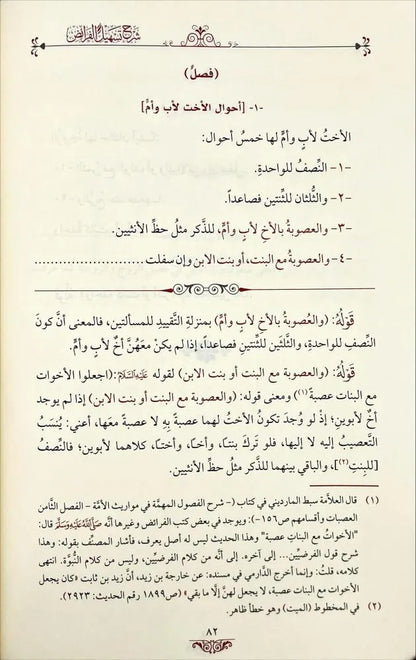 شرح تسهيل الفرائض
(فصلٌ)
-١- [أحوال الأخت لأب وأم]
الأختُ لأبٍ وأمٍّ لها خمسُ أحوال:
-١- النِّصفُ للواحدةِ.
-٢- والثُّلثان للثِّنتين فصاعداً.
-٣- والعصوبةُ بالأخِ لأبٍ وأمٍّ، للذَّكر مثلُ حظِّ الأنثيين.
-٤- والعصوبةُ مع البنت، أو بنت الابن وإن سفلت ........................
قَوْلُهُ: (والعُصوبةُ بالأخ لأب وأمٍّ) بمنزلةِ التَّقييدِ للمسألتين، فالمعنى أنَّ كونَ
النِّصفِ للواحدةِ، والثُّلثَين للثِّنتين فصاعداً، إذا لم يكنْ معَهُنَّ أخٌ لأبٍ وأمٍّ.
قَوْلُهُ: (والعصوبة مع البنت أو بنت الابن) لقوله عَلَيْهِ السَّلَامُ: (اجعلوا الأخوات
مع البنات عصبة)(١) ومعنى قوله: (والعصوبة مع البنت أو بنت الابن) إذا لم يوجد
أخٌ لأبوينِ؛ إذ لو وُجدَ تكونُ الأختُ لهما عصبةً بهِ لا عصبةً معَها، أعني: يُنسَبُ
التَّعصيبُ إليه لا إليها، فلو تَركَ بنتاً، وأخاً، وأختاً، كلاهما لأبوين؛ فالنِّصفُ
[للبنتِ(٢)]، والباقي بينهما للذَّكر مثلُ حظِّ الأنثيين.
(١) قال العلامة سبط المارديني في كتاب (- شرح الفصول المهمَّة في مواريث الأمَّة - الفصل الثامن
العصبات وأقسامهم ص١٥٦-): ويوجد في بعض كتب الفرائض وغيرها أنَّه صَلَّى اللَّهُ عَلَيْهِ وَسَلَّمَ قال:
"الأخواتُ مع البناتِ عصبة" وهذا الحديث ليس له أصل يعرف، فأشار المصنِّف بقوله: وهذا
شرح قول الفرضيِّين... إلى آخره. إلى أنَّه من كلام الفرضيين، وليس من كلام النُّبوَّة. انتهى
كلامه، قلتُ: وإنما أخرج الدَّارمي في مسنده: عن خارجة بن زيد، أنَّ زيد بن ثابت «كان يجعل
الأخوات مع البنات عصبة، لا يجعل لهنَّ إلَّا ما بقي» (ص١٨٩٩ رقم الحديث: ٢٩٢٣).
(٢) في المخطوط (الميت) وهو خطأ ظاهر.
٨٢